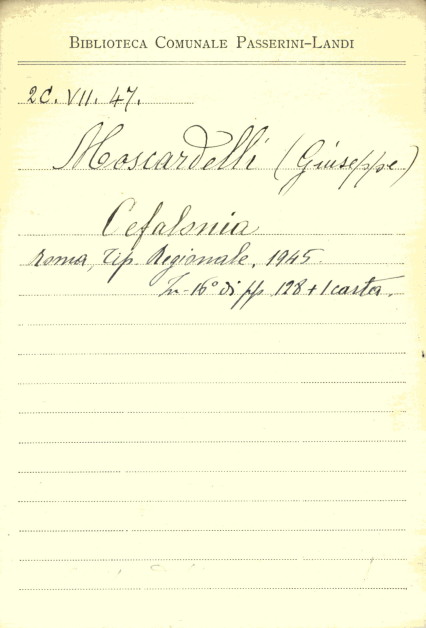 BIBLIOTECA COMUNALE PASSERINI-LANDI
2C. VII. 47.
Moscardelli (Giuseppe)
Cefalonia
Roma, Tip. Regionale, 1945.
In-16° di pp. 128 + 1 carta.